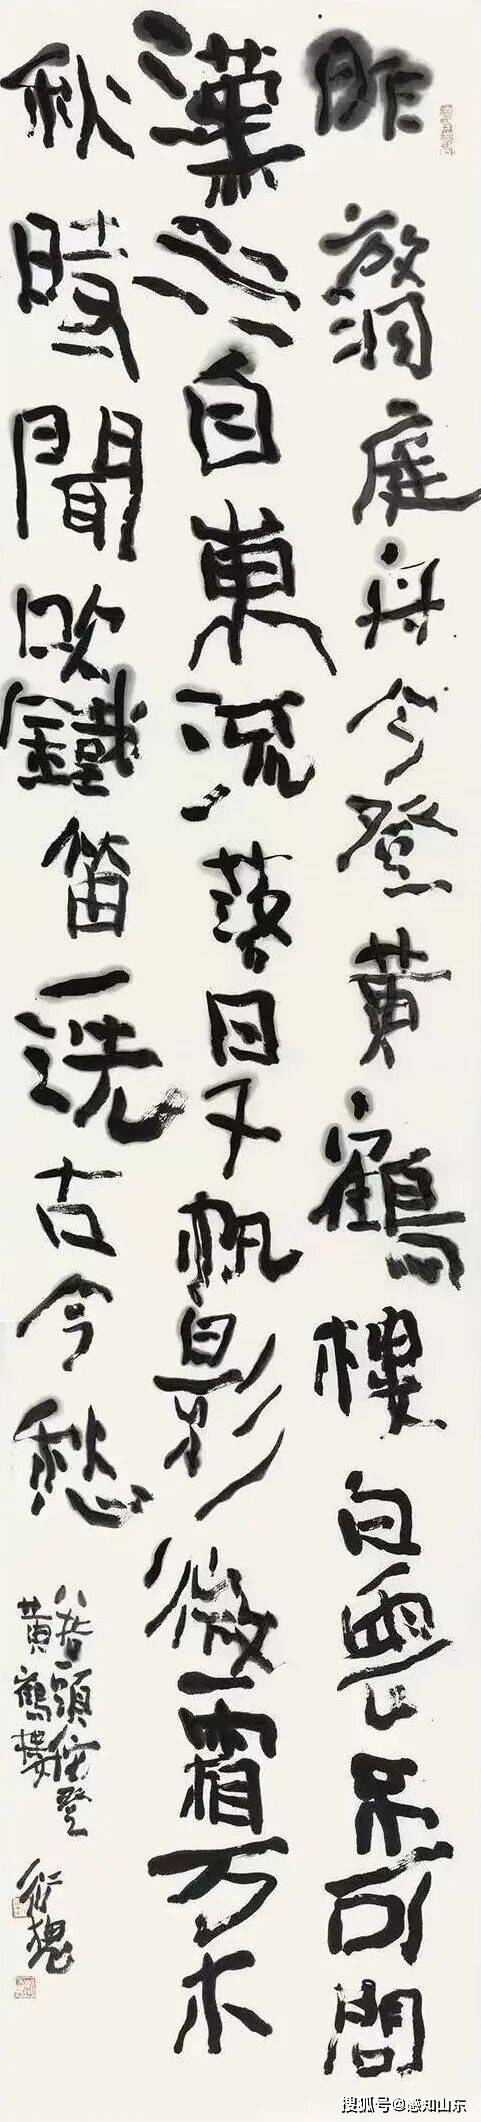 昨放洞庭舟今登黄鶴樓白雲不可問
漢水自東流落日千帆影微霜万木
秋時聞吹鐵笛一洗古今愁
頭陀登
黄鶴樓
搜狐号@感知山东